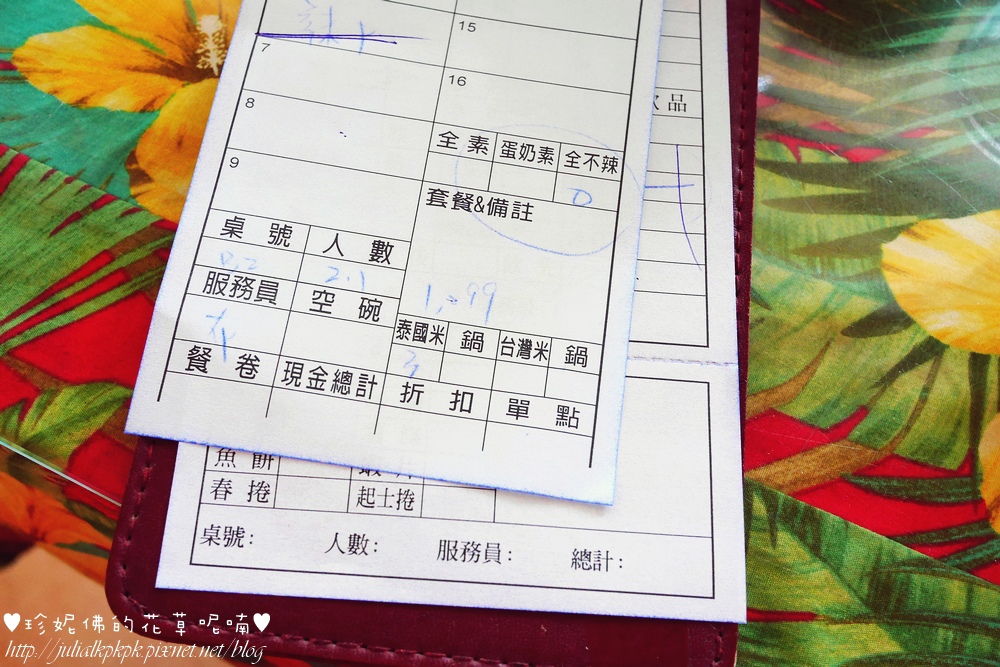 15
7
16
8
欠品
全素 蛋奶素 全不辣
9
0
套餐&備註
桌號 人數
2.1
服務員 空碗
1,099
泰國米 鍋 台灣米 鍋
3
餐卷 現金總計 折扣 單點
魚餅
春捲 起士捲
桌號: 人數: 服務員: 總計:
♥珍妮佛的花草呢喃♥
http://julialkpkpk.pixnet.net/blog